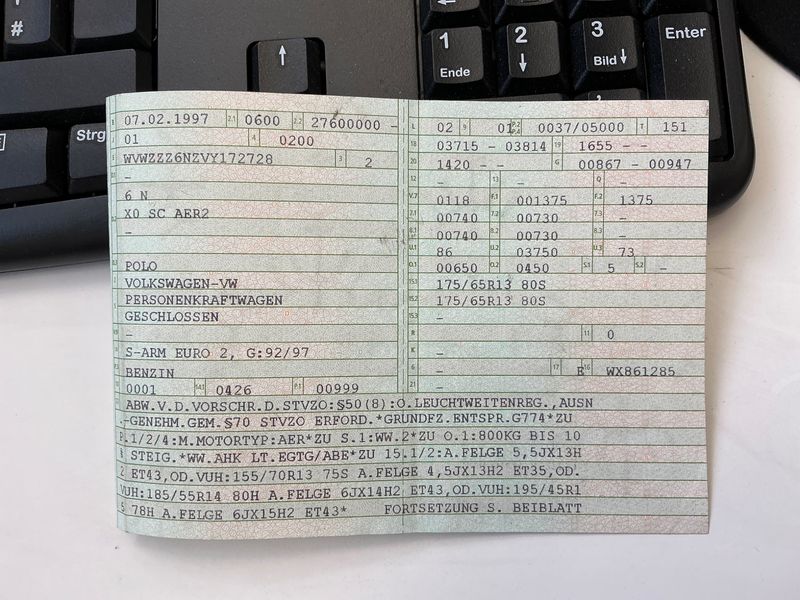 #
1
Ende
2
↓
3
Bild ↓
Enter
↑
Strg
07.02.1997 2.1 0600 2.2 27600000 -
01 4 0200
WVWZZZ6NZVY172728 3 2
-
6 N
X0 SC AER2
-
POLO
VOLKSWAGEN-VW
PERSONENKRAFTWAGEN
GESCHLOSSEN
-
S-ARM EURO 2, G:92/97
BENZIN
0001 14.1 0426 P.1 00999
L 02 9 01 P.2 P.4 0037/05000 T 151
18 03715 - 03814 19 1655 - -
20 1420 - - G 00867 - 00947
12 - 13 - Q -
V.7 0118 F.1 001375 F.2 1375
7.1 00740 7.2 00730 7.3 -
8.1 00740 8.2 00730 8.3 -
U.1 86 U.2 03750 U.3 73
O.1 00650 O.2 0450 S.1 5 S.2 -
15.1 175/65R13 80S
15.2 175/65R13 80S
15.3 -
R 11 0
K -
6 - 17 E 16 WX861285
21 -
ABW.V.D.VORSCHR.D.STVZO:§50(8):O.LEUCHTWEITENREG.,AUSN
.-GENEHM.GEM.§70 STVZO ERFORD.*GRUNDFZ.ENTSPR.G774*ZU
P.1/2/4:M.MOTORTYP:AER*ZU S.1:WW.2*ZU O.1:800KG BIS 10
% STEIG.*WW.AHK LT.EGTG/ABE*ZU 15.1/2:A.FELGE 5,5JX13H
2 ET43,OD.VUH:155/70R13 75S A.FELGE 4,5JX13H2 ET35,OD.
VUH:185/55R14 80H A.FELGE 6JX14H2 ET43,OD.VUH:195/45R1
5 78H A.FELGE 6JX15H2 ET43* FORTSETZUNG S. BEIBLATT